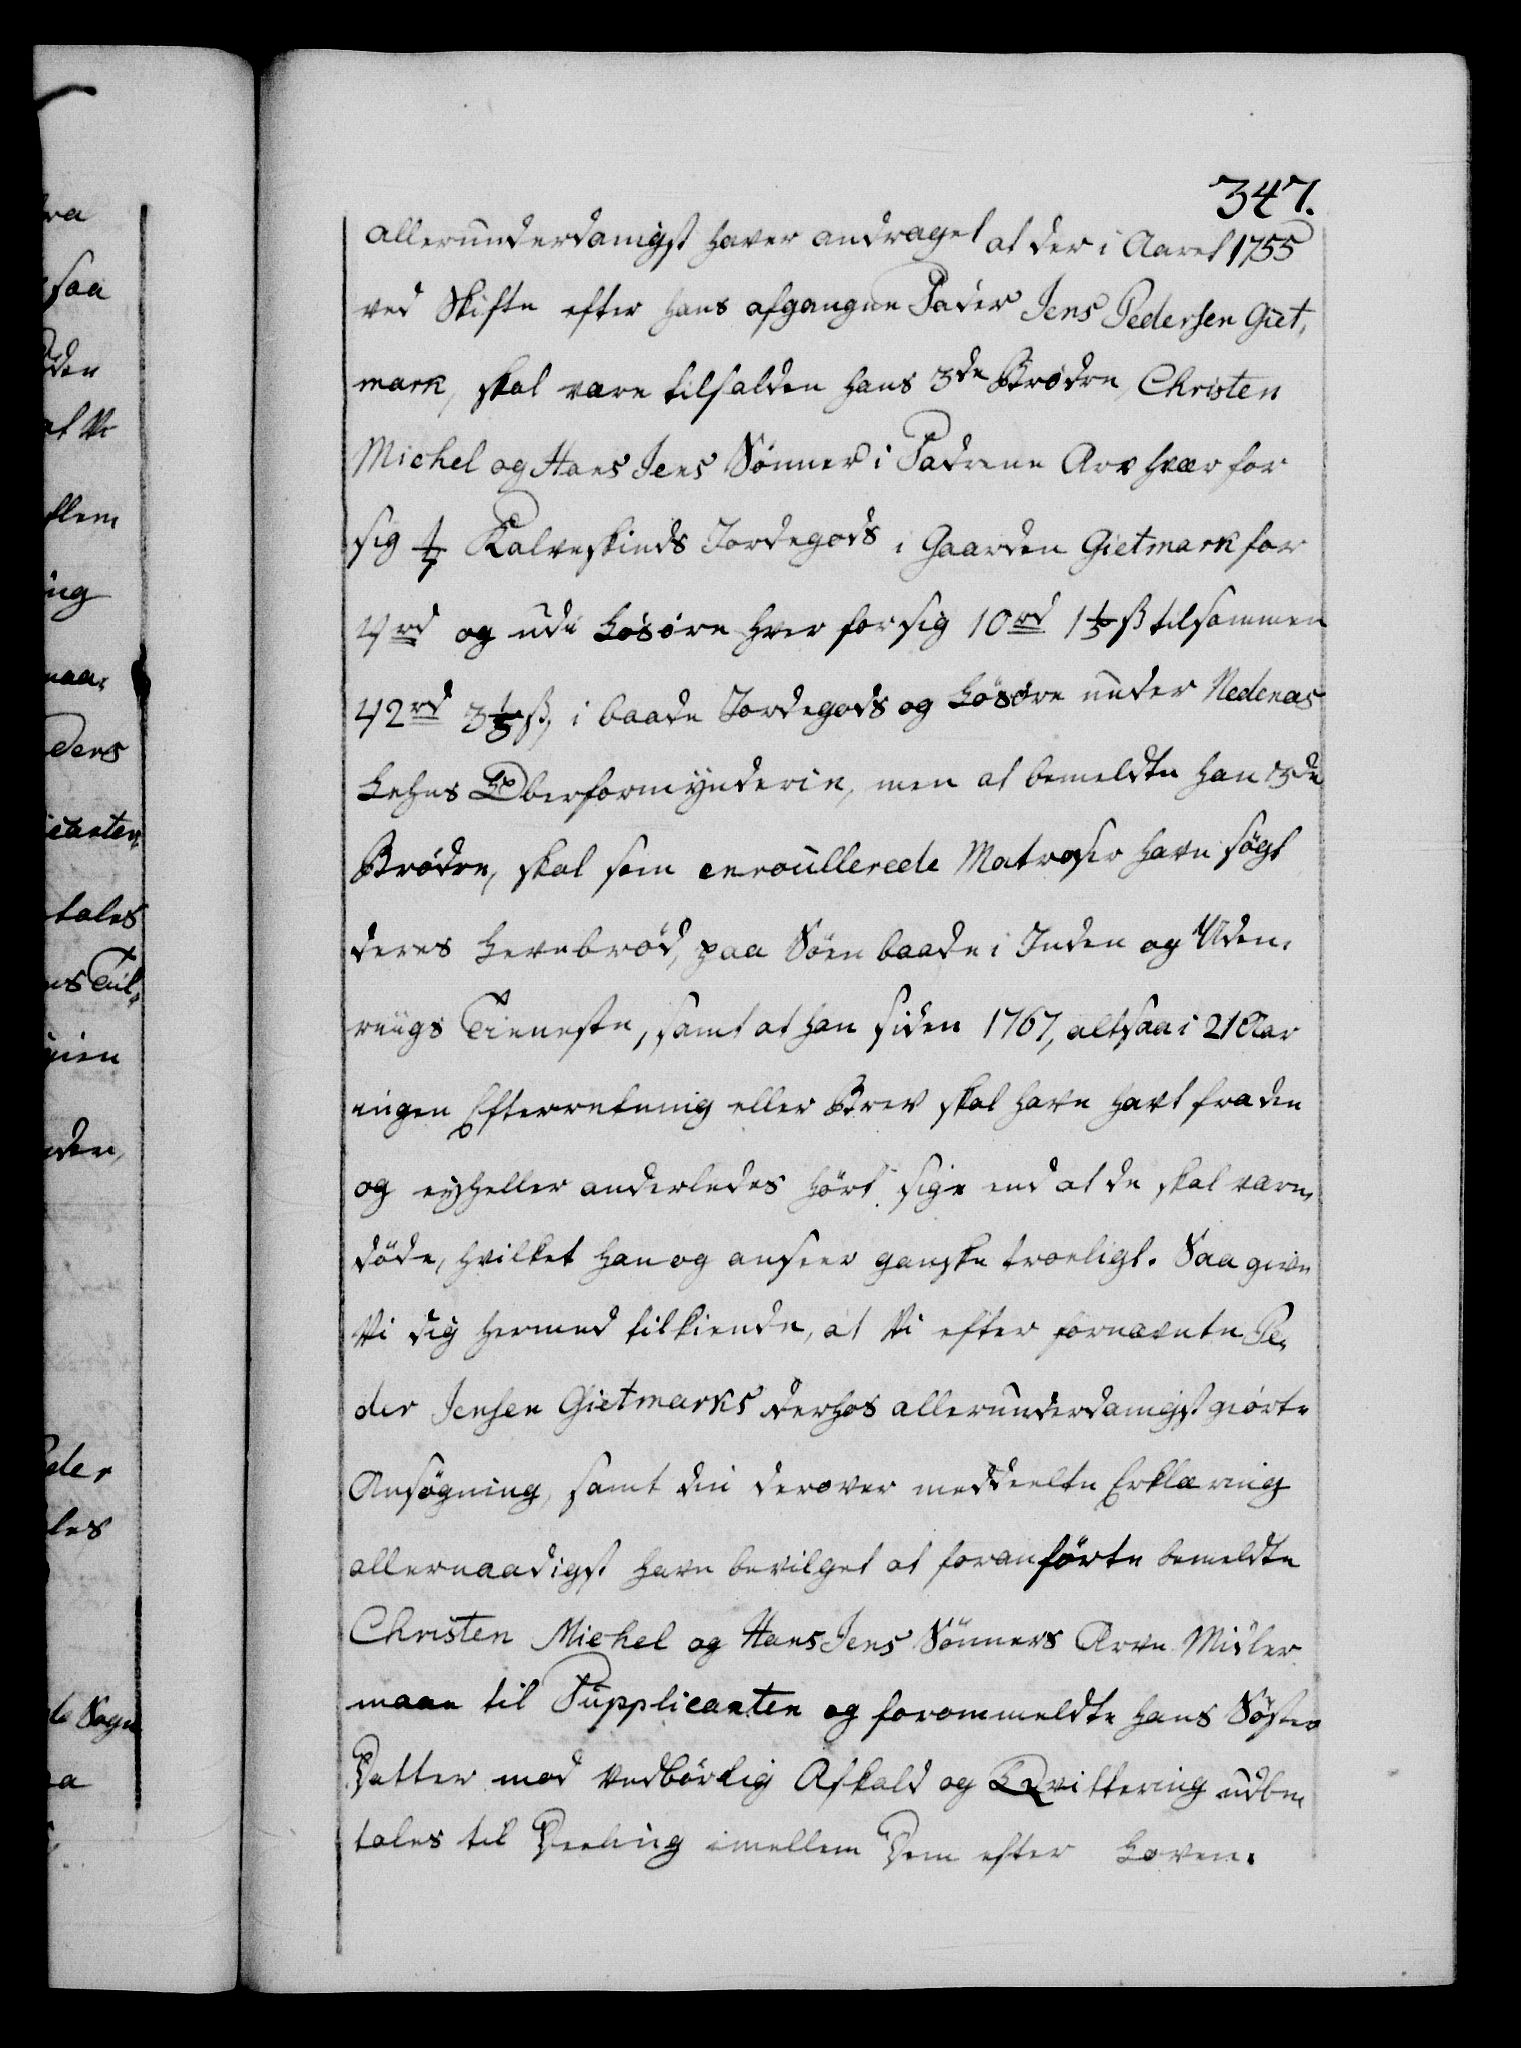 347.
allerunderdanigst haver andraget at der i Aaret 1755
ved Skifte efter hans afgangne Fader Jens Pedersen Giet,
mark, skal være tilfalden hans 3de Brödre, Christen
Michel og Hans Jens Sönner i Fædrene Arv hver for
sig 1/7 Kalveskinds Jordegods i Gaarden Gietmark for
4rd og udi Lösöre hver for sig 10rd 1 1/3 ß tilsammen
42rd 3 1/3 ß, i baade Jordegods og Lösöre under Nedenæs
Lehns Oberformynderie, men at bemeldte han 3de
Brödre, skal som enroullerede Matroser have sögt
deres Levebröd, paa Söen baade i Inden og Uden,
riigs Tieneste, samt at han siden 1767, altsaa i 21 Aar
ingen Efterretning eller Brev skal have havt fra den
og eyheller anderledes hört sige end at de skal være
döde, hvilket han og anseer ganske troeligt. Saa give
Vi dig hermed tilkiende, at Vi efter fornævnte Pe,
der Jensen Gietmarks derhos allerunderdanigst giörte
Ansögning, samt din derover meddeelte Erklæring
allernaadigst have bevilget at foranförte bemeldte
Christen Michel og Hans Jens Sönners Arve Midler
maae til Supplicanten og forommeldte hans Söster
Datter mod vedbörlig Afkald og Qvittering udbe,
tales til Deeling imellem Dem efter Loven.